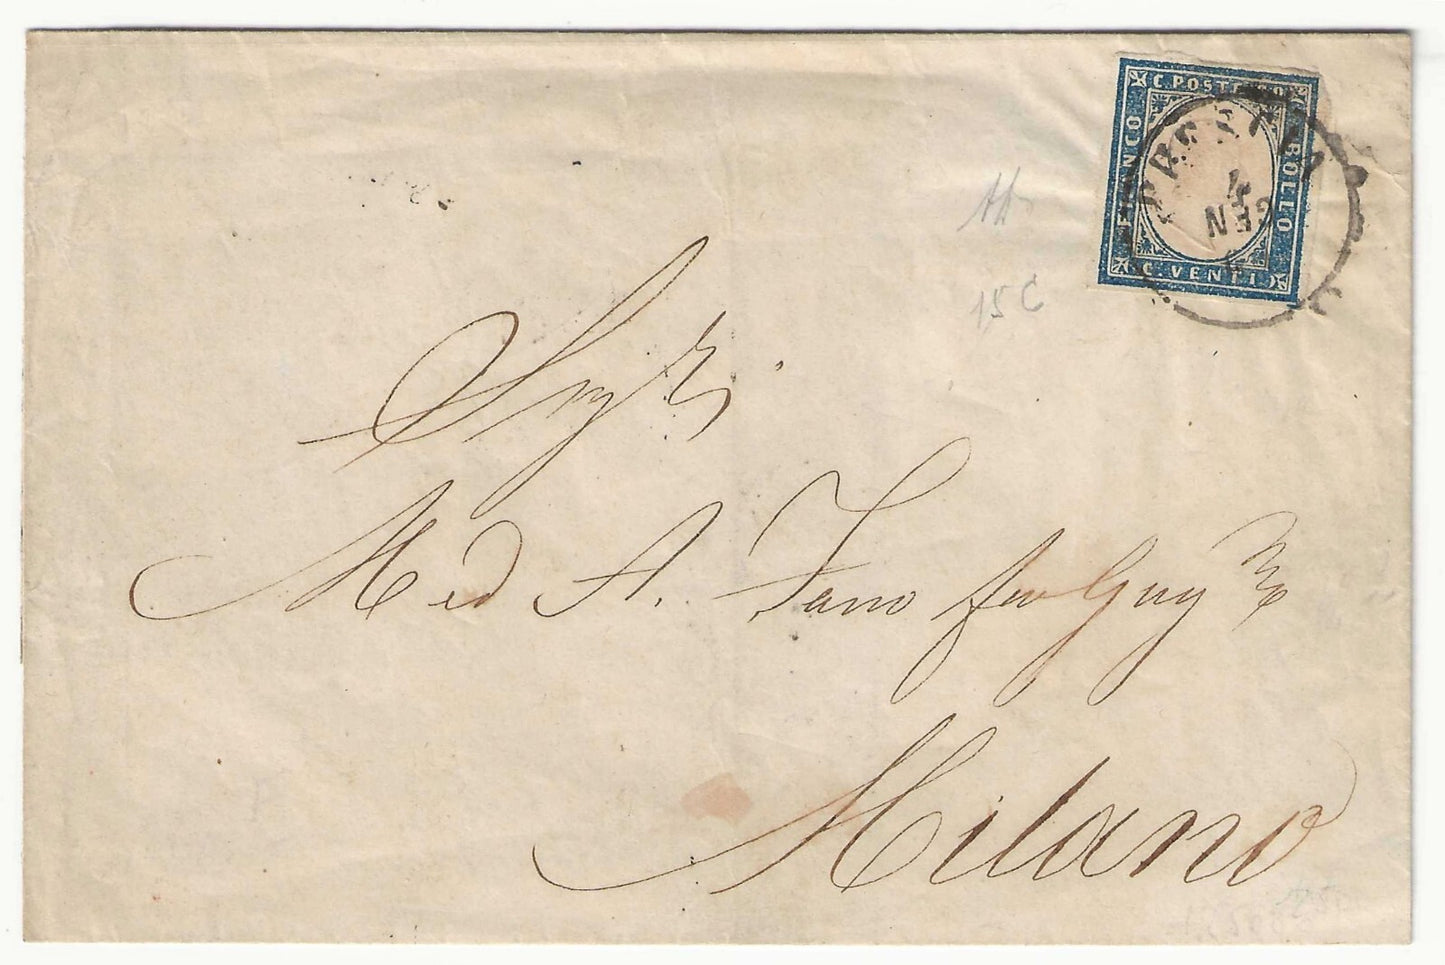 C. POSTE
FRANCO
BOLLO
C. VENTI
BRESCIA
4
GEN
15 C
Sig.ri
Med A. Fano
Milano